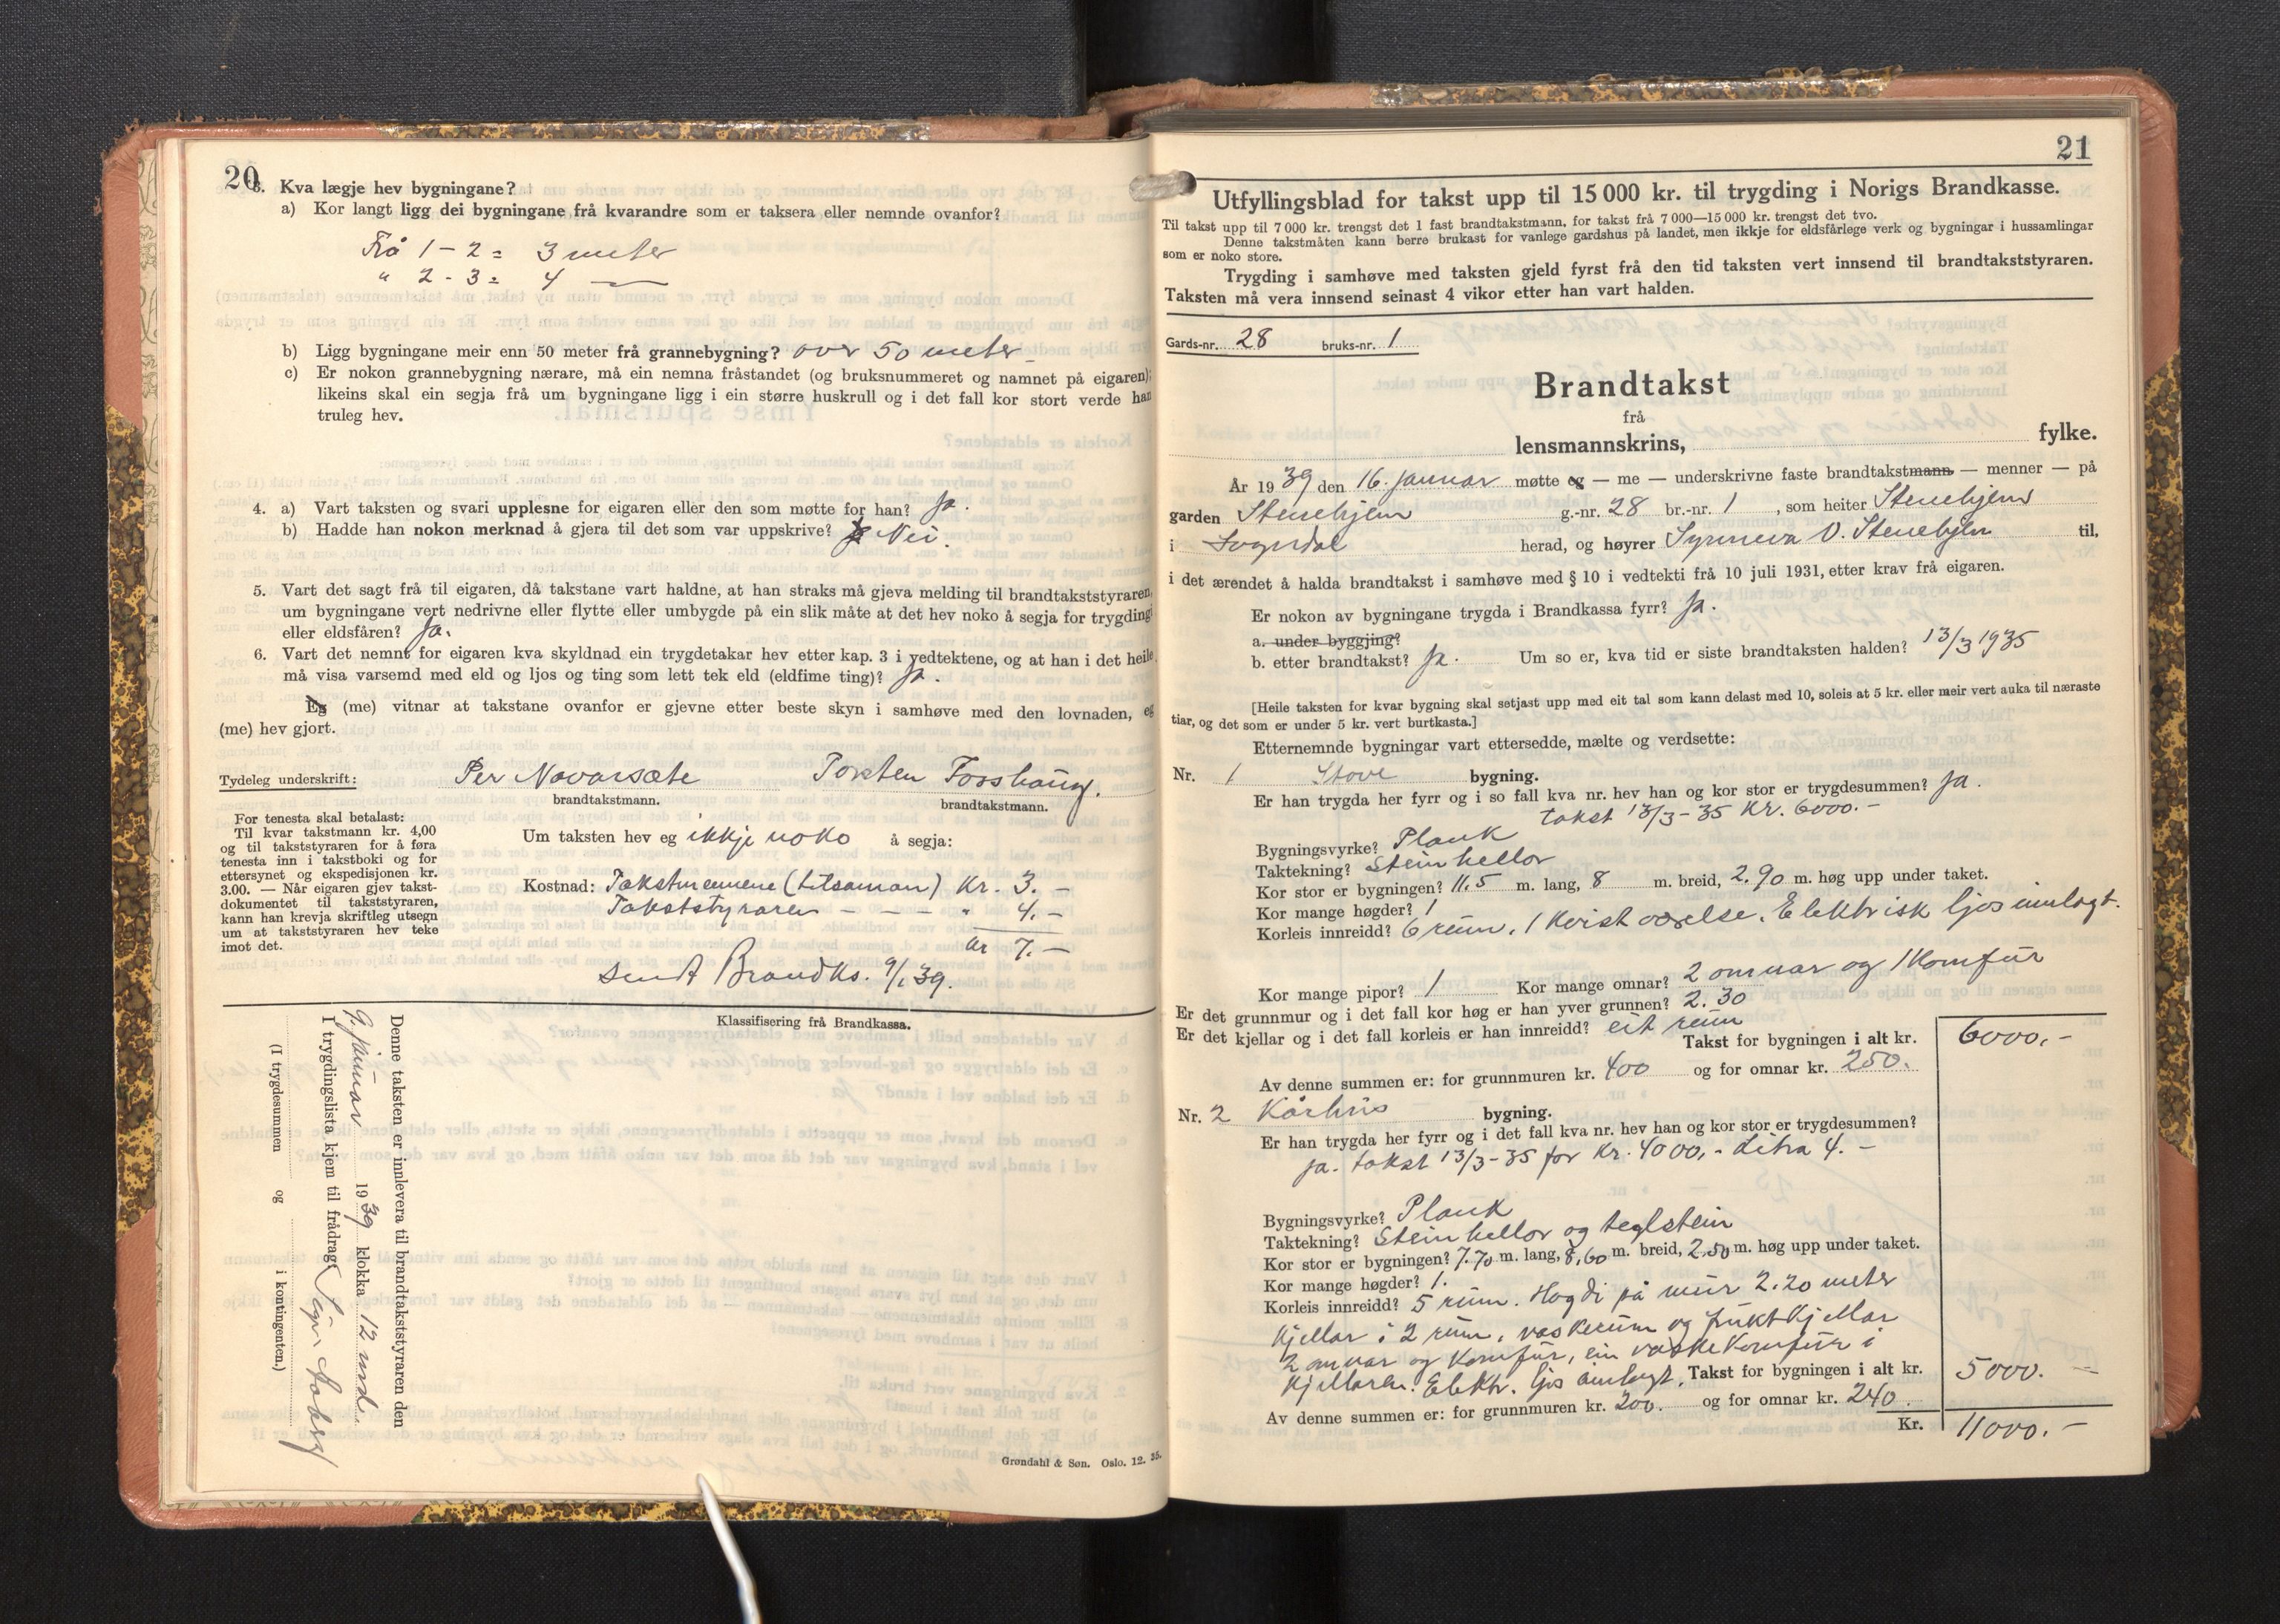 20
3. Kva lægje hev bygningane?
a) Kor langt ligg dei bygningane frå kvarandre som er taksera eller nemnde ovanfor?
Frå 1 - 2 = 3 meter
" 2 - 3 = 4 —
b) Ligg bygningane meir enn 50 meter frå grannebygning? over 50 meter
c) Er nokon grannebygning nærare, må ein nemna fråstandet (og bruksnummeret og namnet på eigaren);
likeins skal ein segja frå um bygningane ligg i ein større huskrull og i det fall kor stort verde han
truleg hev.
4. a) Vart taksten og svari upplesne for eigaren eller den som møtte for han? Ja.
b) Hadde han nokon merknad å gjera til det som var uppskrive? Nei.
5. Vart det sagt frå til eigaren, då takstane vart haldne, at han straks må gjeva melding til brandtakststyraren,
um bygningane vert nedrivne eller flytte eller umbygde på ein slik måte at det hev noko å segja for trygding
eller eldsfåren? Ja.
6. Vart det nemnt for eigaren kva skyldnad ein trygdetakar hev etter kap. 3 i vedtektene, og at han i det heile
må visa varsemd med eld og ljos og ting som lett tek eld (eldfime ting)? Ja.
Eg (me) vitnar at takstane ovanfor er gjevne etter beste skyn i samhøve med den lovnaden, eg
(me) hev gjort.
Tydeleg underskrift: Per Navarsete Torsten Fosshaug.
brandtakstmann. brandtakstmann.
For tenesta skal betalast:
Til kvar takstmann kr. 4,00
og til takststyraren for å føra
tenesta inn i takstboki og for
ettersynet og ekspedisjonen kr.
3.00. — Når eigaren gjev takst-
dokumentet til takststyraren,
kann han krevja skriftleg utsegn
um at takststyraren hev teke
imot det.
Um taksten hev eg ikkje noko å segja:
Kostnad: Takstmennene (tilsaman) Kr. 3. -
Takststyraren - - - " 4. -
Kr 7. -
Sendt Brandks. 9/1 39.
Klassifisering frå Brandkassa.
Denne taksten er innlevera til brandtakststyraren den
9. januar 1939 klokka 12 md.
I trygdingslista kjem til frådrag:
(I trygdesummen og i kontingenten.)
Grøndahl & Søn. Oslo. 12. 35.
21
Utfyllingsblad for takst upp til 15 000 kr. til trygding i Norigs Brandkasse.
Til takst upp til 7 000 kr. trengst det 1 fast brandtakstmann, for takst frå 7 000—15 000 kr. trengst det tvo.
Denne takstmåten kann berre brukast for vanlege gardshus på landet, men ikkje for eldsfårlege verk og bygningar i hussamlingar
som er noko store.
Trygding i samhøve med taksten gjeld fyrst frå den tid taksten vert innsend til brandtakststyraren.
Taksten må vera innsend seinast 4 vikor etter han vart halden.
Gards-nr. 28 bruks-nr. 1
Brandtakst
frå
lensmannskrins, fylke.
År 1939 den 16. januar møtte eg — me — underskrivne faste brandtakstmann — menner — på
garden Stenehjem g.-nr. 28 br.-nr. 1, som heiter Stenehjem
i Sogndal herad, og høyrer Synneva O. Stenehjem til,
i det ærendet å halda brandtakst i samhøve med § 10 i vedtekti frå 10 juli 1931, etter krav frå eigaren.
Er nokon av bygningane trygda i Brandkassa fyrr? Ja.
a. under byggjing?
b. etter brandtakst? Ja. Um so er, kva tid er siste brandtaksten halden? 13/3 1935
[Heile taksten for kvar bygning skal setjast upp med eit tal som kann delast med 10, soleis at 5 kr. eller meir vert auka til næraste
tiar, og det som er under 5 kr. vert burtkasta.]
Etternemnde bygningar vart ettersedde, mælte og verdsette:
Nr. 1 Stove bygning.
Er han trygda her fyrr og i so fall kva nr. hev han og kor stor er trygdesummen? Ja.
takst 13/3-35 Kr. 6000. -
Bygningsvyrke? Plank
Taktekning? Steinhellor
Kor stor er bygningen? 11.5 m. lang, 8 m. breid, 2.90 m. høg upp under taket.
Kor mange høgder? 1
Korleis innreidd? 6 rum, 1 kvistværelse. Elektrisk ljos innlagt.
Kor mange pipor? 1 Kor mange omnar? 2 omnar og 1 Komfur
Er det grunnmur og i det fall kor høg er han yver grunnen? 2.30
Er det kjellar og i det fall korleis er han innreidd? eit rum
Takst for bygningen i alt kr. 6000, -
Av denne summen er: for grunnmuren kr. 400 og for omnar kr. 250.
Nr. 2 Kårhus bygning.
Er han trygda her fyrr og i det fall kva nr. hev han og kor stor er trygdesummen?
ja. takst 13/3-35 for Kr. 4000, - Litra 4. -
Bygningsvyrke? Plank
Taktekning? Steinhellor og teglstein
Kor stor er bygningen? 7.70 m. lang, 8,60 m. breid, 2.50 m. høg upp under taket.
Kor mange høgder? 1.
Korleis innreidd? 5 rum. Høgdi på mur 2.20 meter
Kjellar i 2 rum, vaskerum og fruktkjellar
2 omnar og Komfur, ein vaskekomfur i
Kjellaren. Elektr. ljos innlagt. Takst for bygningen i alt kr. 5000. -
Av denne summen er: for grunnmuren kr. 200. og for omnar kr. 240.
Kr. 11000. -